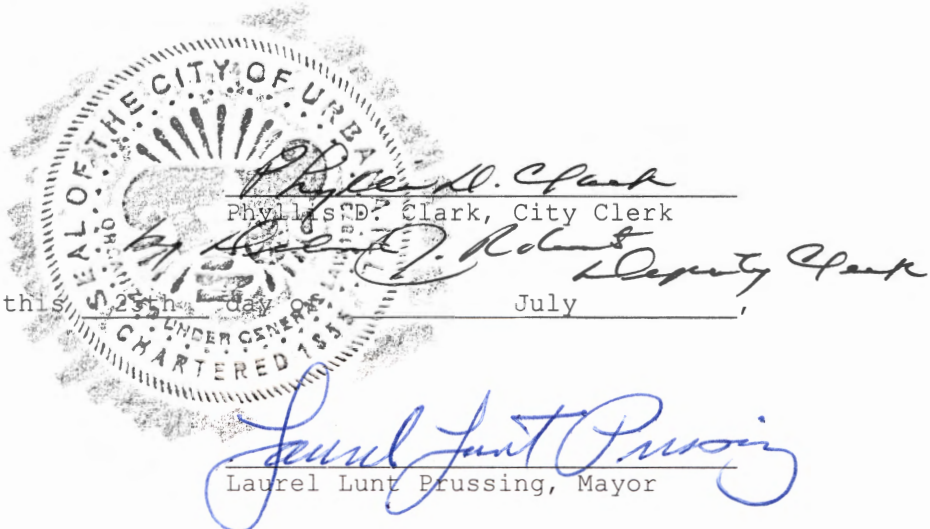 SEAL OF THE CITY OF URBANA
UNDER GENERAL
CHARTERED 1855
Phyllis D. Clark
Phyllis D. Clark, City Clerk
by J. Roberts
Deputy Clerk
this 25th day of July,
Laurel Lunt Prussing
Laurel Lunt Prussing, Mayor